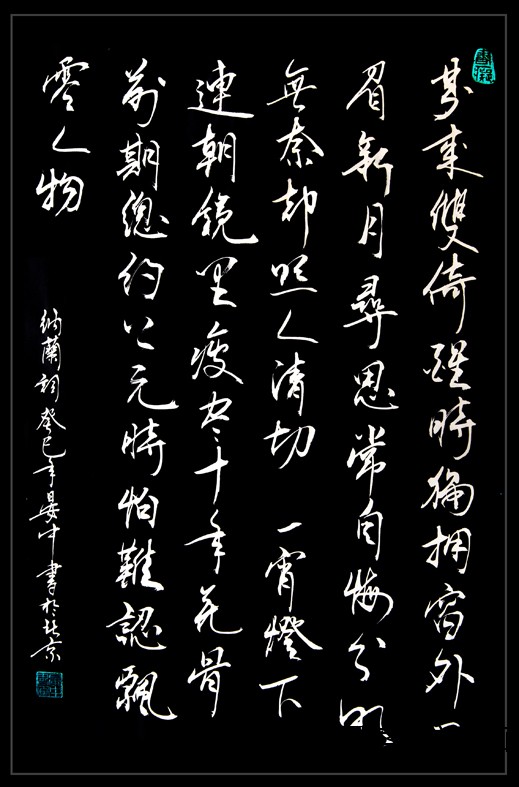 夢來雙倚醒時獨擁窗外一
眉新月尋思常自悔分明
無奈却照人清切 一宵燈下
連朝鏡里瘦盡十年花骨
前期總約上元時怕難認飄
零人物
納蘭詞癸巳年晏中書於北京